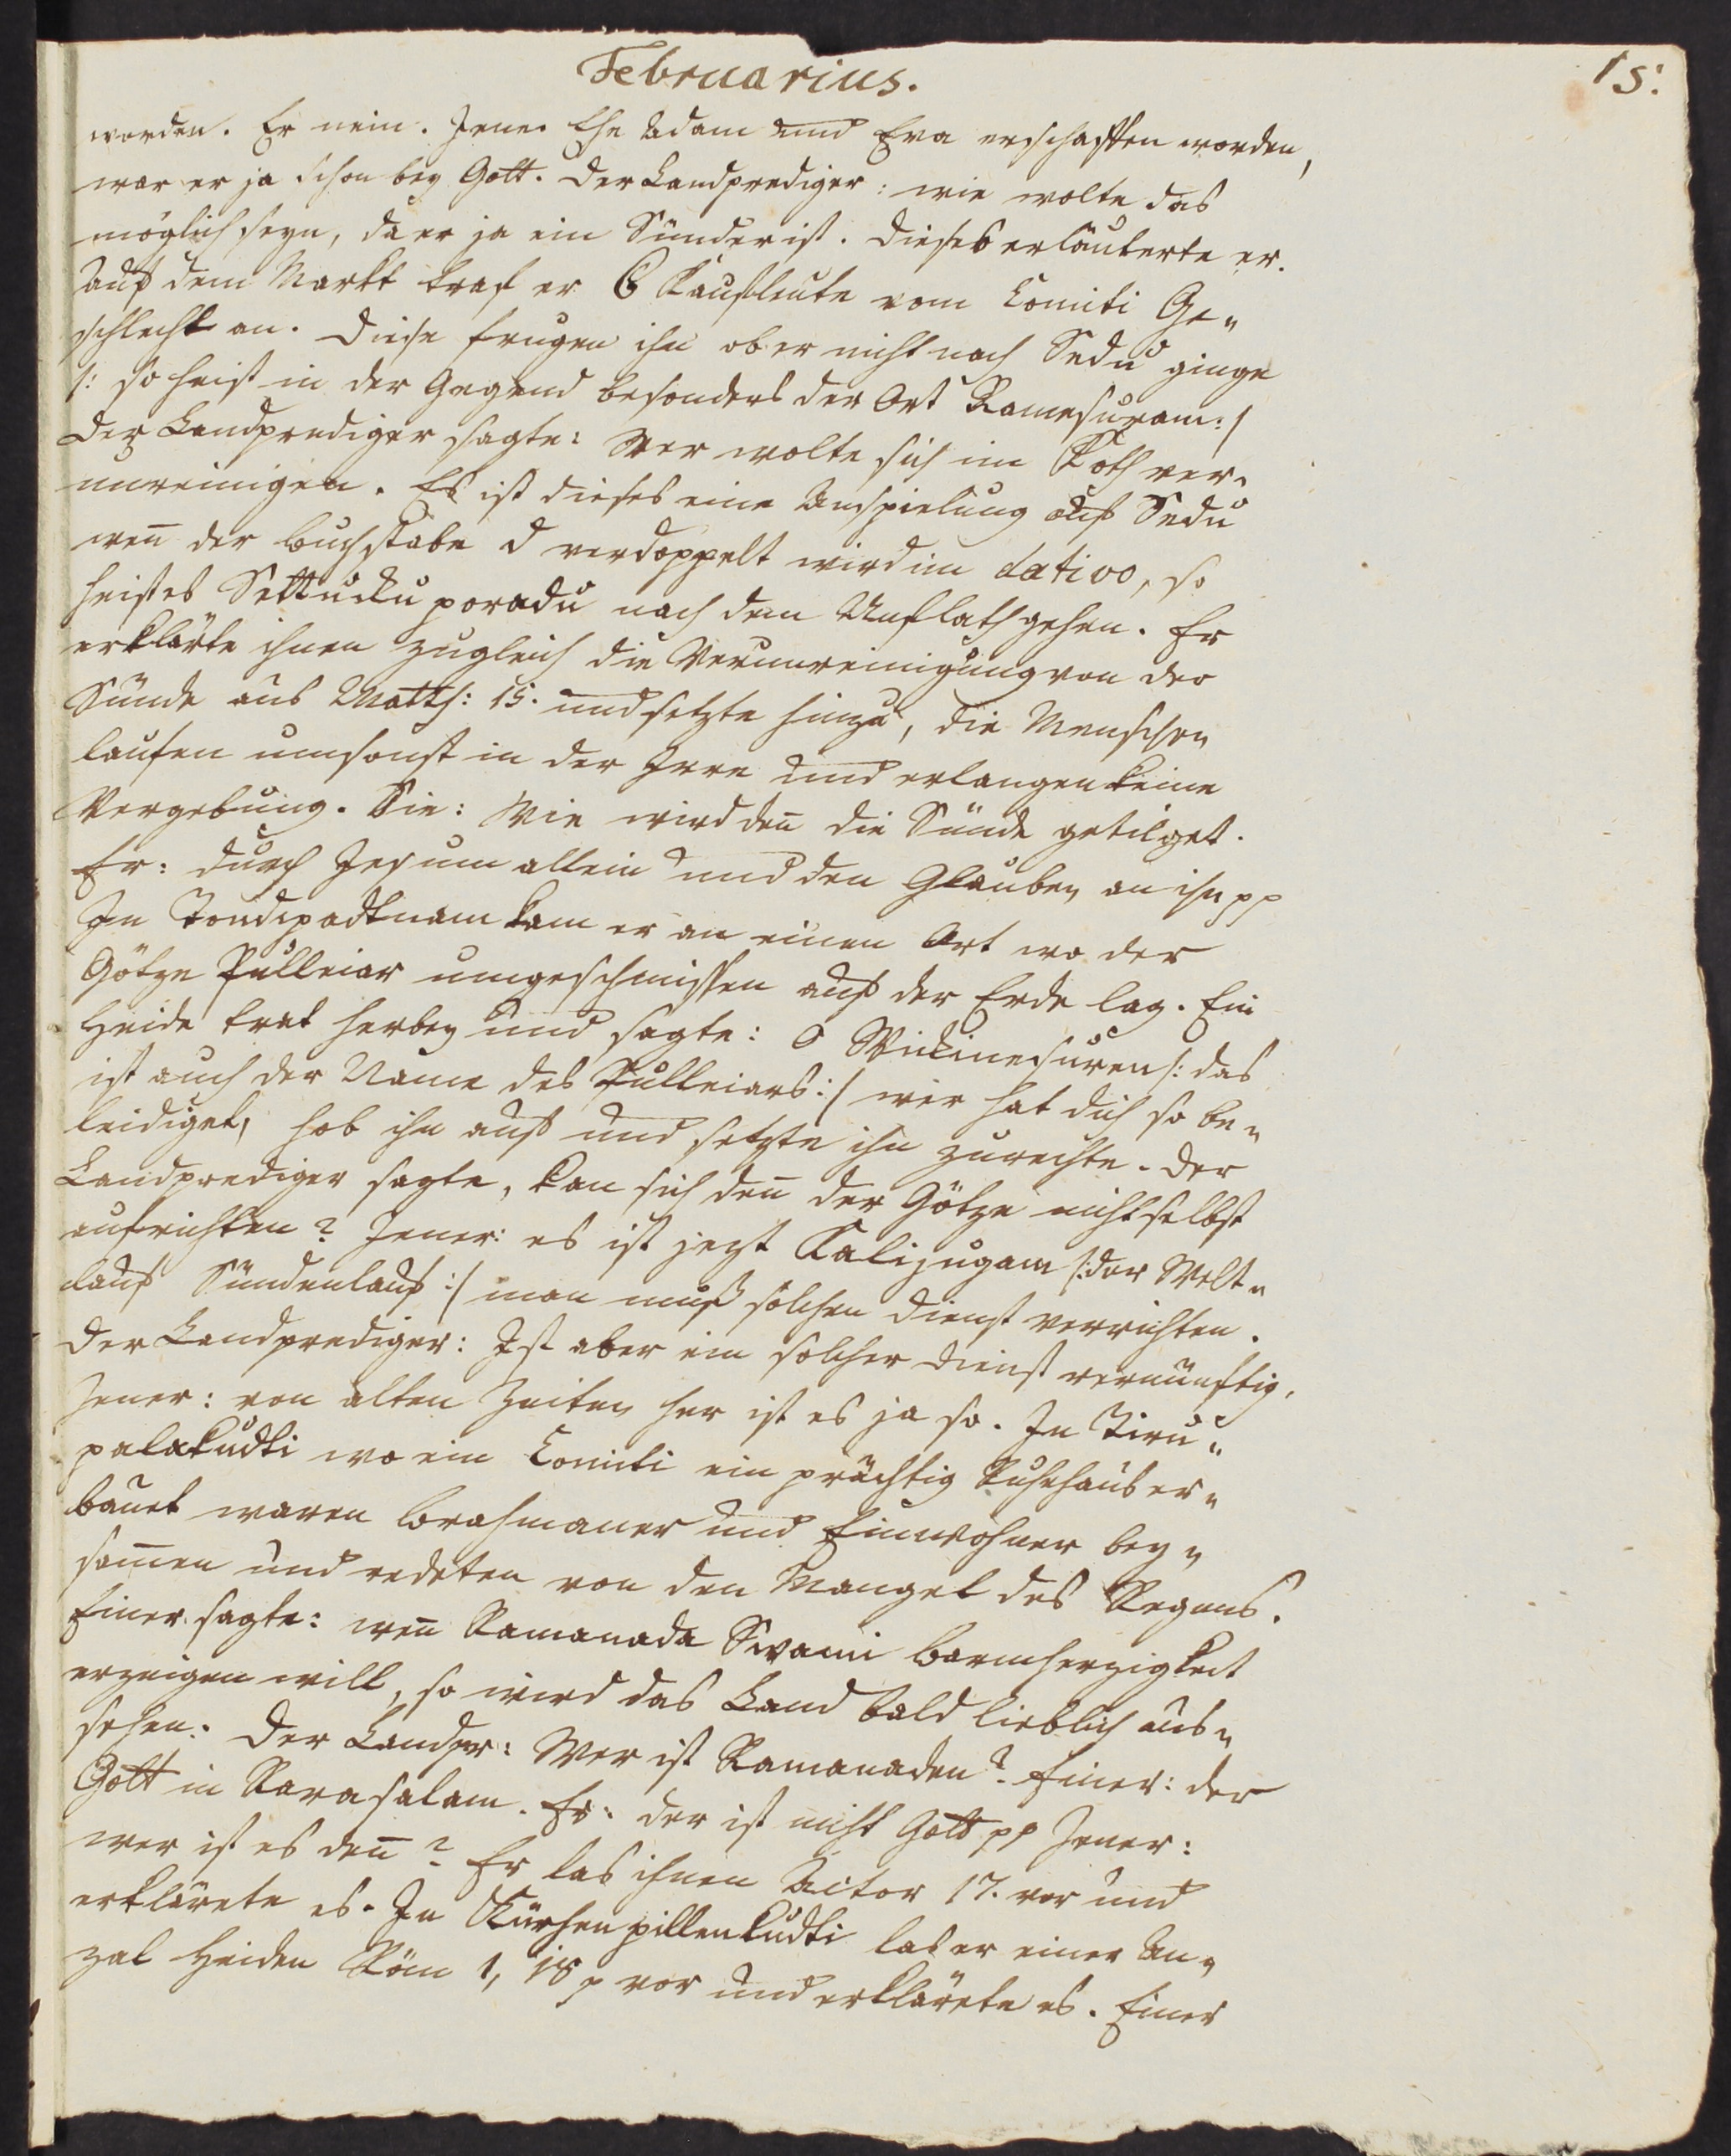 Februarius.
15.
worden. Er nein. Jener Ehe Adam und Eva erschaffen worden,
war er ja schon bey Gott. Der Landprediger: wie wolte das
möglich seyn, da er ja ein Sünder ist. Dieses erläuterte er.
Auf dem Markt traf er 6 Kaufleute vom Comiti Ge„
schlecht an. Diese frugen ihn ob er nicht nach Sedu ginge
/: so heist in der Gegend besonders der Ort Ramesuram:/
Der Landprediger sagte: Wer wolte sich im Koth ver„
unreinigen. Es ist dieses eine Anspielung auf Sedu
weñ der Buchstabe d verdoppelt wird im dativo, so
heist es Settucku poradu nach dem Unflath gehen. Er
erklärte ihnen zugleich die Verunreinigung von der
Sünde aus Matth: 15. und setzte hinzu, die Menschen
laufen umsonst in der Irre und erlangen keine
Vergebung. Sie: Wie wird deñ die Sünde getilget.
Er: durch Jesum allein und den Glauben an ihn pp
In Tondipadtnam kam er an einen Ort wo der
Götze Pulleiar umgeschmissen auf der Erde lag. Ein
Heide trat herbey und sagte: O Wickinesuren /: das
ist auch der Name des Pulleiars:/ wer hat dich so be„
leidiget, hob ihn auf und setzte ihn zurechte. Der
Landprediger sagte, kan sich deñ der Götze nicht selbst
aufrichten? Jener: es ist jezt Kalijugam /: der Welt„
lauf Sündenlauf:/ man muß solchen Dienst verrichten.
Der Landprediger: Ist aber ein solcher Dienst vernünftig.
Jener: von alten Zeiten her ist es ja so. In Tiru„
palakudti wo ein Comiti ein prächtig Ruhehaus er„
bauet waren Brahmaner und Einwohner bey„
sam̃en und redeten von den Mangel des Regens.
Einer sagte: weñ Ramanada Swami Barmherzigkeit
erzeigen will, so wird das Land bald lieblich aus„
sehen. Der Landpr: Wer ist Ramanaden? Einer: der
Gott in Ravasalam. Er: der ist nicht Gott pp Jener:
wer ist es deñ? Er las ihnen Actor 17. vor und
erklärete es. In Kürhenpillenkudti las er einer An„
zal Heiden Röm 1, 18 p vor und erklärete es. Einer